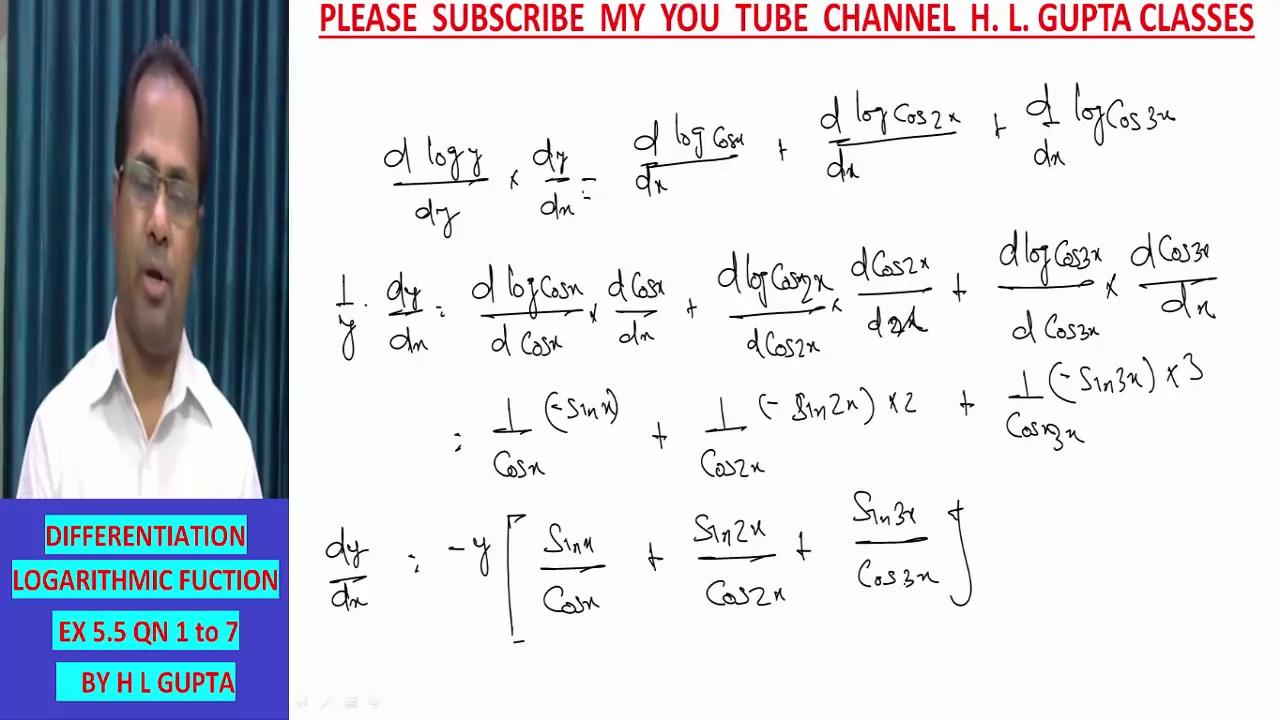 PLEASE SUBSCRIBE MY YOU TUBE CHANNEL H. L. GUPTA CLASSES
d log y / dy × dy/dx = d log Cosx / dx + d log Cos2x / dx + d/dx log Cos3x
1/y · dy/dx = d log Cosx / d Cosx × d Cosx / dx + d log Cos2x / d Cos2x × d Cos2x / d2x + d log Cos3x / d Cos3x × d Cos3x / dx
= 1/Cosx (-Sinx) + 1/Cos2x (-Sin2x) × 2 + 1/Cos3x (-Sin3x) × 3
dy/dx = -y [ Sinx/Cosx + Sin2x/Cos2x + Sin3x/Cos3x ]
DIFFERENTIATION
LOGARITHMIC FUCTION
EX 5.5 QN 1 to 7
BY H L GUPTA